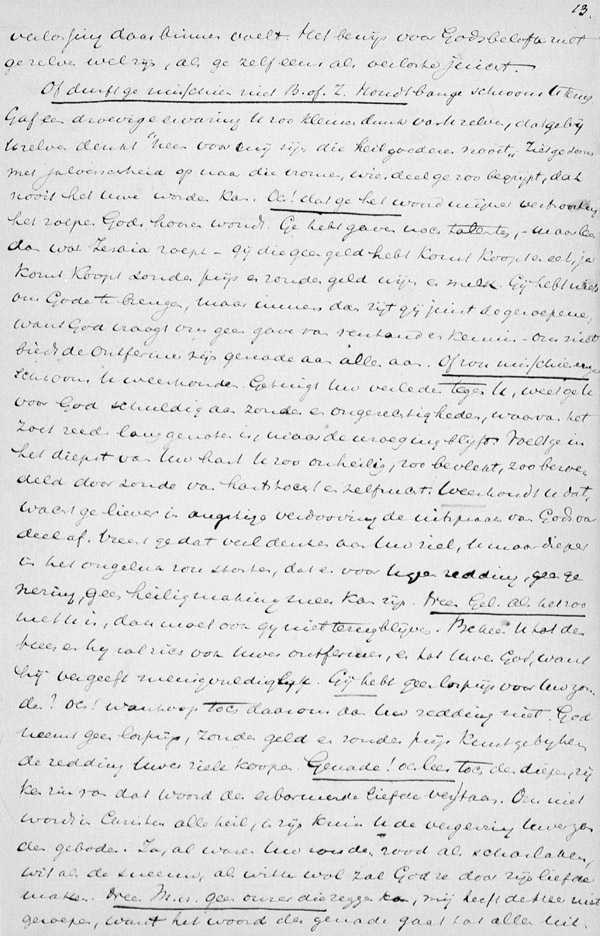 13.
verlossing daar binnen voelt. Het bewijs voor Gods belofte moet
gezelve wel zijn, als ge zelf eens als verloste juicht.
Of durft ge misschien niet B. of Z. Houdt bange schroom U terug
Gaf een droevige ervaring U zoo kleinen dunk van U zelve, dat gebij
U zelve denkt "neen voor mij zijn die heilgoederen nooit". Ziet ge soms
met jaloerschheid op naar die vrome, wier deel ge zoo begrijpt, dat
nooit het Uwe worden kan. Och! dat ge het woord mijner vertroosting
het roepen Gods hooren wondt. Ge hebt gaven noch talenten, - maar lees
dan wat Jesaia roept - gij die geen geld hebt komt koopt en eet, ja
komt koopt zonder prijs en zonder geld wijn en melk. Gij hebt niets
om Gode te brengen, maar immers dan zijt gij juist de geroepene,
want God vraagt om geen gave van verstand en kennis - om niet
biedt de Ontfermer zijn genade aan allen aan. Of zou misschien
schroom U weerhouden. Getuigt Uw verleden tegen U, weet ge U
voor God schuldig aan zonden en ongerechtigheden, waarvan het
zoet reeds lang genoten is, maar de wroeging blijft. Voelt ge in
het diepst van Uw hart U zoo onheilig, zoo bevlekt, zoo bezoe-
deld door zonde van hartstocht en zelfzucht. Weerhoudt U dat,
wacht ge liever in angstige verdooving de uitspraak van Gods oor
deel af. Vreest ge dat veel denken aan Uw ziel, U maar dieper
in het ongeluk zou storten, dat er voor U geen redding, geen ge
nezing, geen heiligmaking meer kan zijn. Neen Gel. als het zoo
met U is, dan moet ook gij niet terugblijven. Bekeer U tot den
Heer en hij zal zich over Uwer ontfermen, en tot Uwen God, want
hij vergeeft menigvuldiglijk. Gij hebt geen losprijs voor Uw zon
de? Och! wanhoop toch daarom aan Uw redding niet. God
neemt geen losprijs, zonder geld en zonder prijs kunt ge bij hem
de redding Uwer ziele koopen. Genade! och leer toch den diepen zin
van dat woord der erbarmende liefde verstaan. Om niet
wordt in Christus alle heil, in zijn kruis U de vergeving Uwer zon
den geboden. Ja, al waren Uw zonden rood als scharlaken,
wit als de sneeuw, als witte wol zal God ze door zijn liefde
maken. Neen M. H. geen onzer die zeggen kan, mij heeft de Heer niet
geroepen, want het woord der genade gaat tot allen uit.